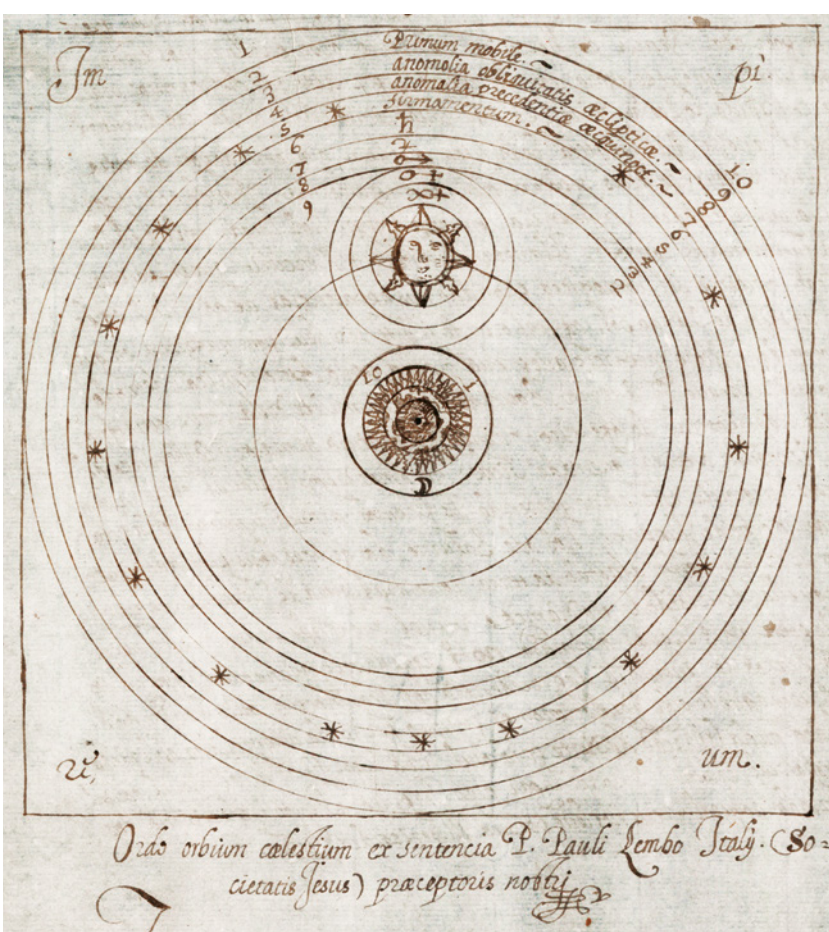 Im
pi
Primum mobile.
anomolia obliquitatis æclipticæ.
anomalia precedentiæ æquinoct.
firmamentum.
1
2
3
4
5
6
7
8
9
10
9
8
7
6
5
4
3
2
♄
♃
♂
☿
♀
10
1
☾
um.
Ordo orbium cælestium ex sentencia P. Pauli Lembo Italÿ. (So=
cietatis Jesus) præceptoris nostri